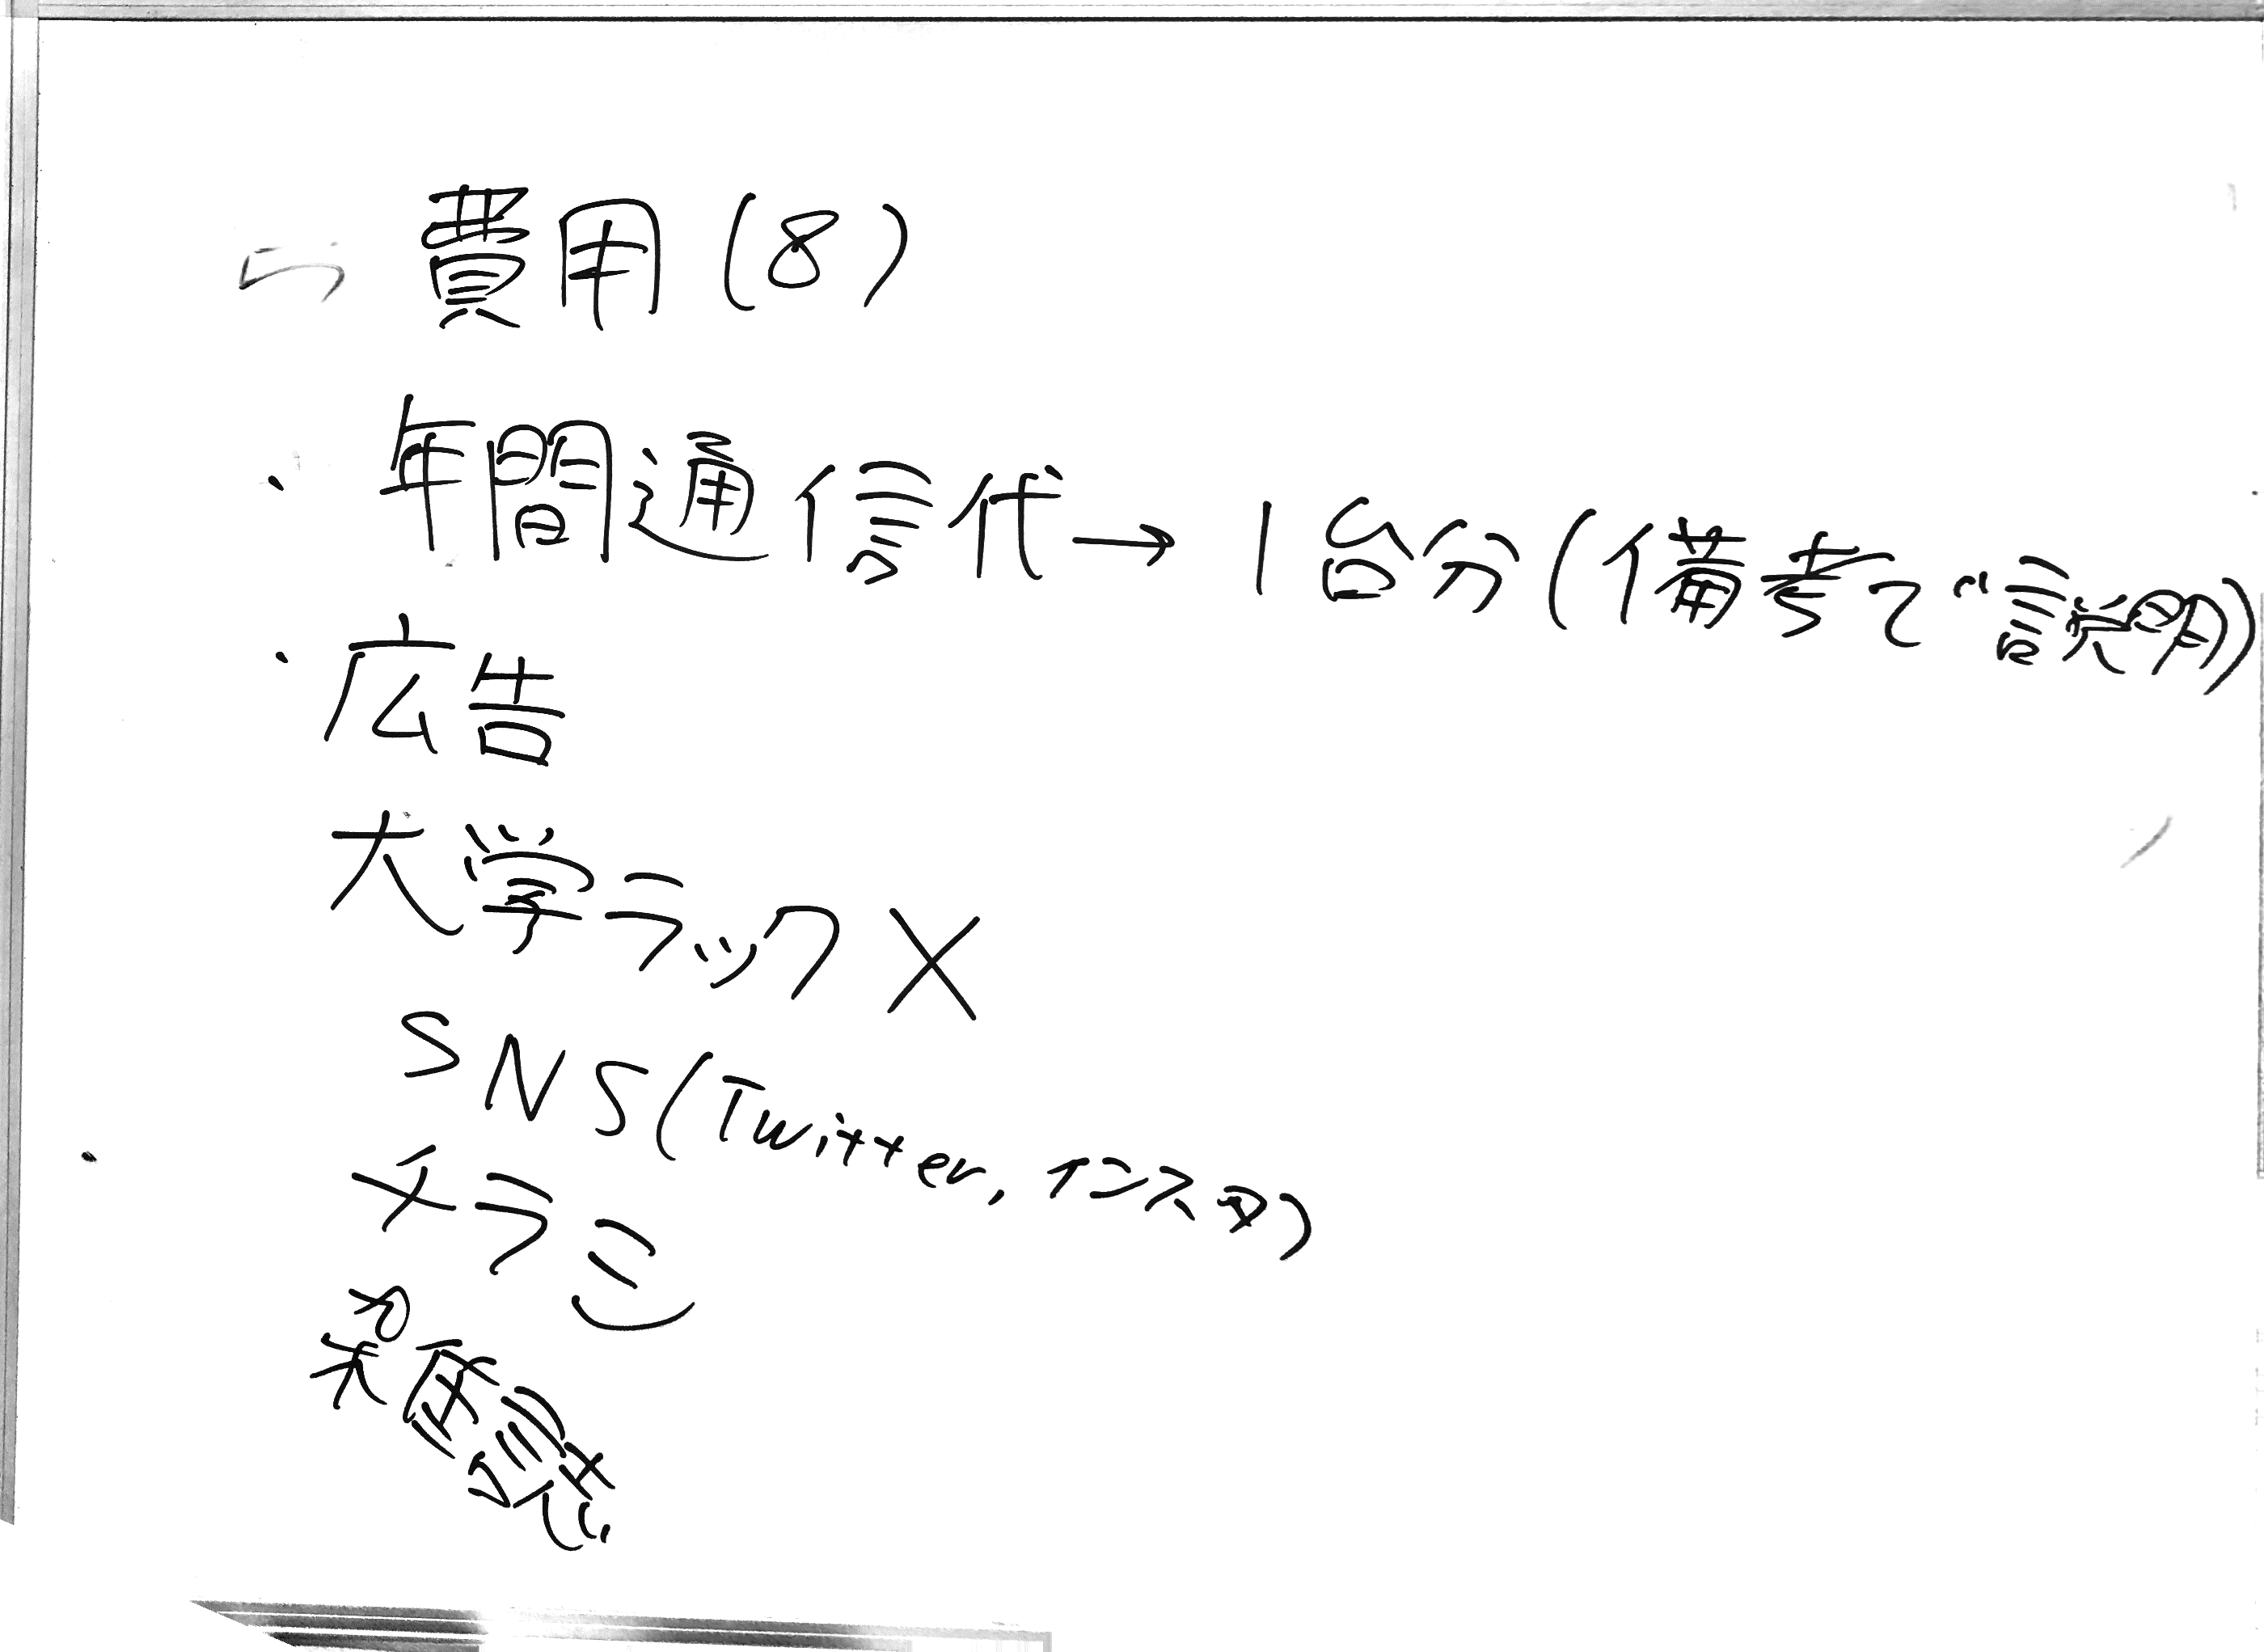 費用(8)
・年間通信代→1台分(備考で説明)
・広告
大学ラック×
SNS(Twitter, インスタ)
チラシ
雑誌